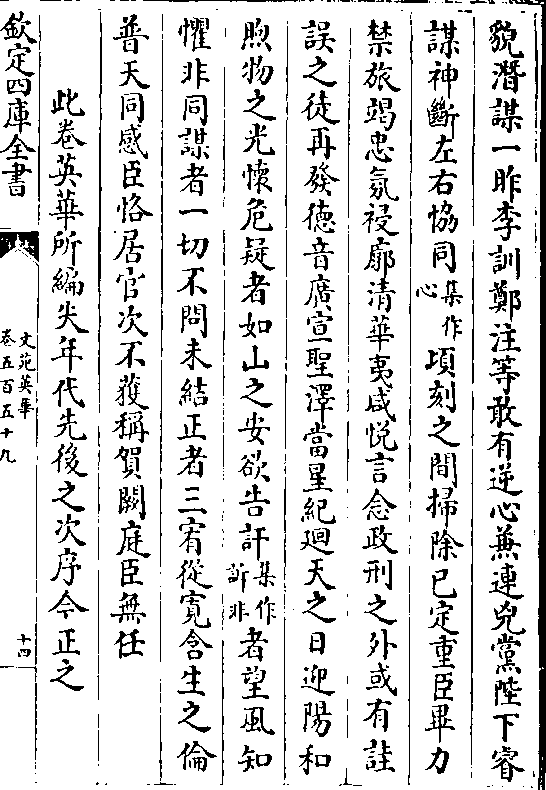 貌潛謀一昨李訓鄭注等敢有逆心兼連兇黨陛下睿
謀神斷左右協同集作心頃刻之間掃除已定重臣畢力
禁旅竭忠氛祲廓清華夷咸悅言念政刑之外或有詿
誤之徒再發德音廣宣聖澤當星紀廻天之日迎陽和
煦物之光懷危疑者如山之安欲告訐集作訴非者望風知
懼非同謀者一切不問未結正者三宥從寛含生之倫
普天同感臣恪居官次不獲稱賀闕庭臣無任
此卷英華所編失年代先後之次序今正之
欽定四庫全書
文苑英華
卷五百五十九
十四